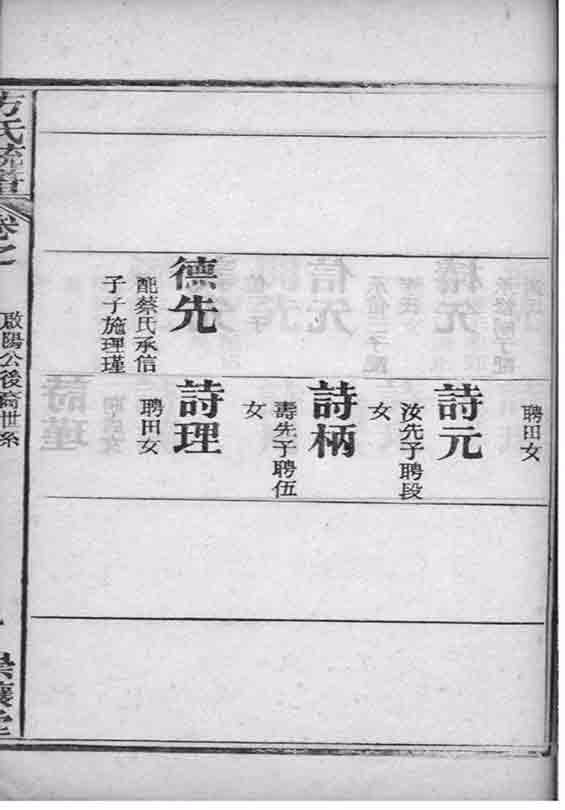 德先
配蔡氏承信
子子施理瑾
聘田女
詩元
汝先子聘段
女
詩柄
壽先子聘伍
女
詩理
聘田女
方氏統譜
卷之
啟陽公後裔世系